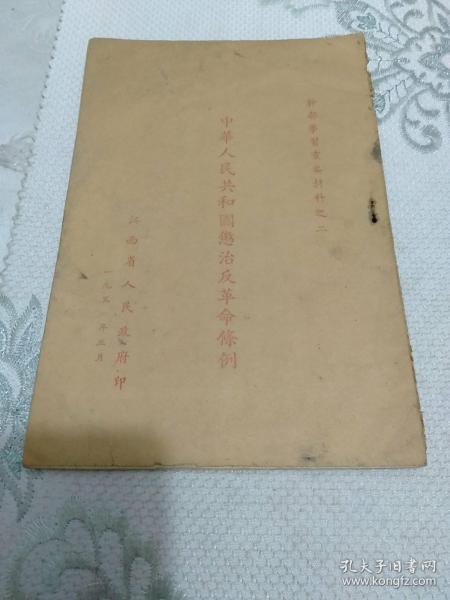 幹部學習重要材料之二
中華人民共和國懲治反革命條例
江西省人民政府印
一九五 年三月
孔夫子旧书网
www.kongfz.com